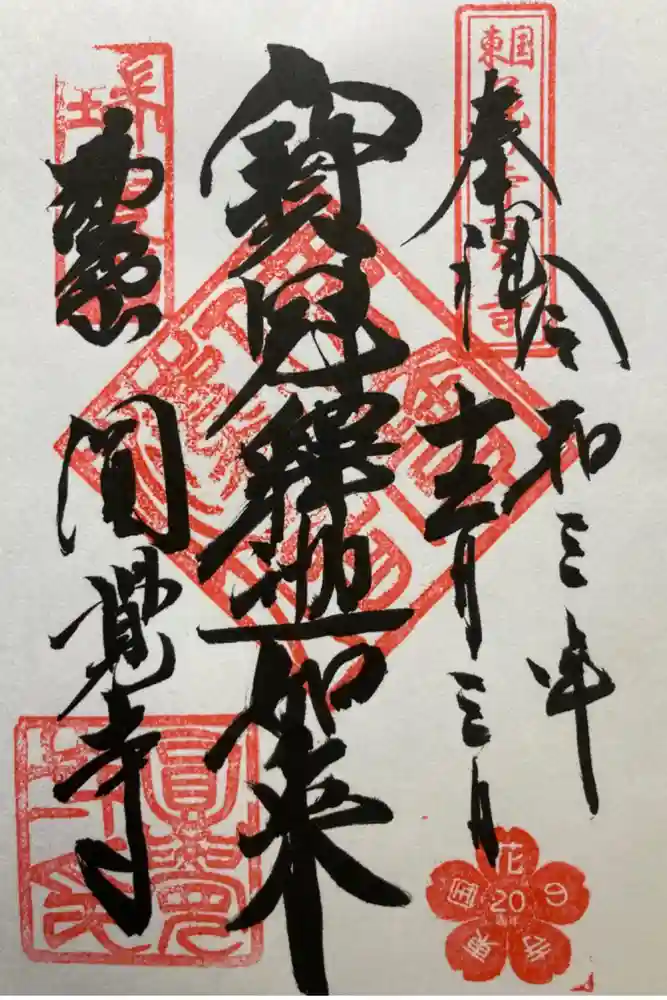 東国花の寺百ヶ寺
奉拝
令和三年
十二月三日
寶冠釋迦如来
圓覺寺
東国花の寺
20